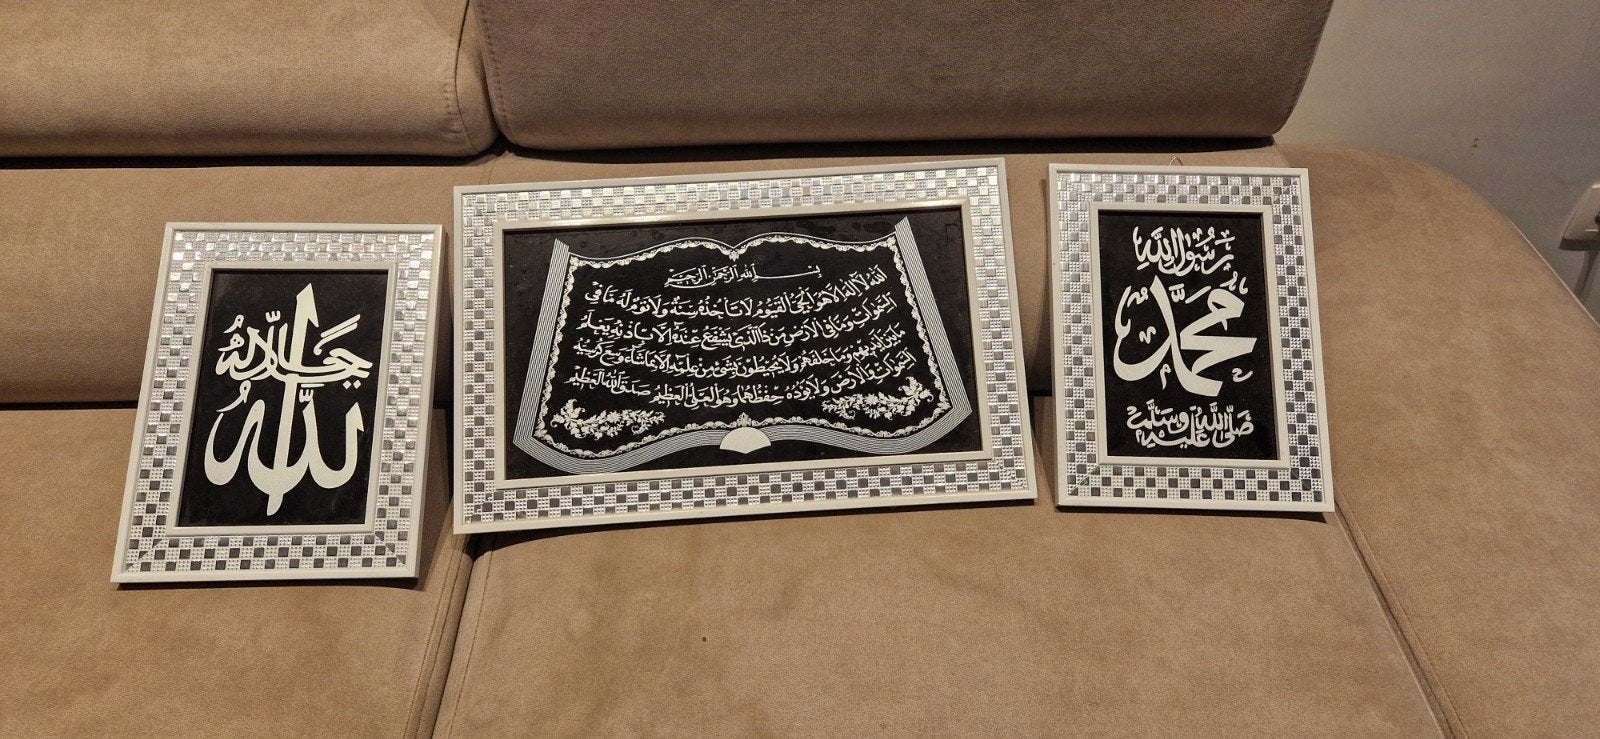 الله
جل جلاله
بسم الله الرحمن الرحيم
الله لا اله الا هو الحي القيوم لا تأخذه سنة ولا نوم له ما في
السموات وما في الارض من ذا الذي يشفع عنده الا باذنه يعلم
ما بين ايديهم وما خلفهم ولا يحيطون بشيء من علمه الا بما شاء وسع كرسيه
السموات والارض ولا يؤده حفظهما وهو العلي العظيم صدق الله العظيم
رسول الله
محمد
صلى الله عليه وسلم